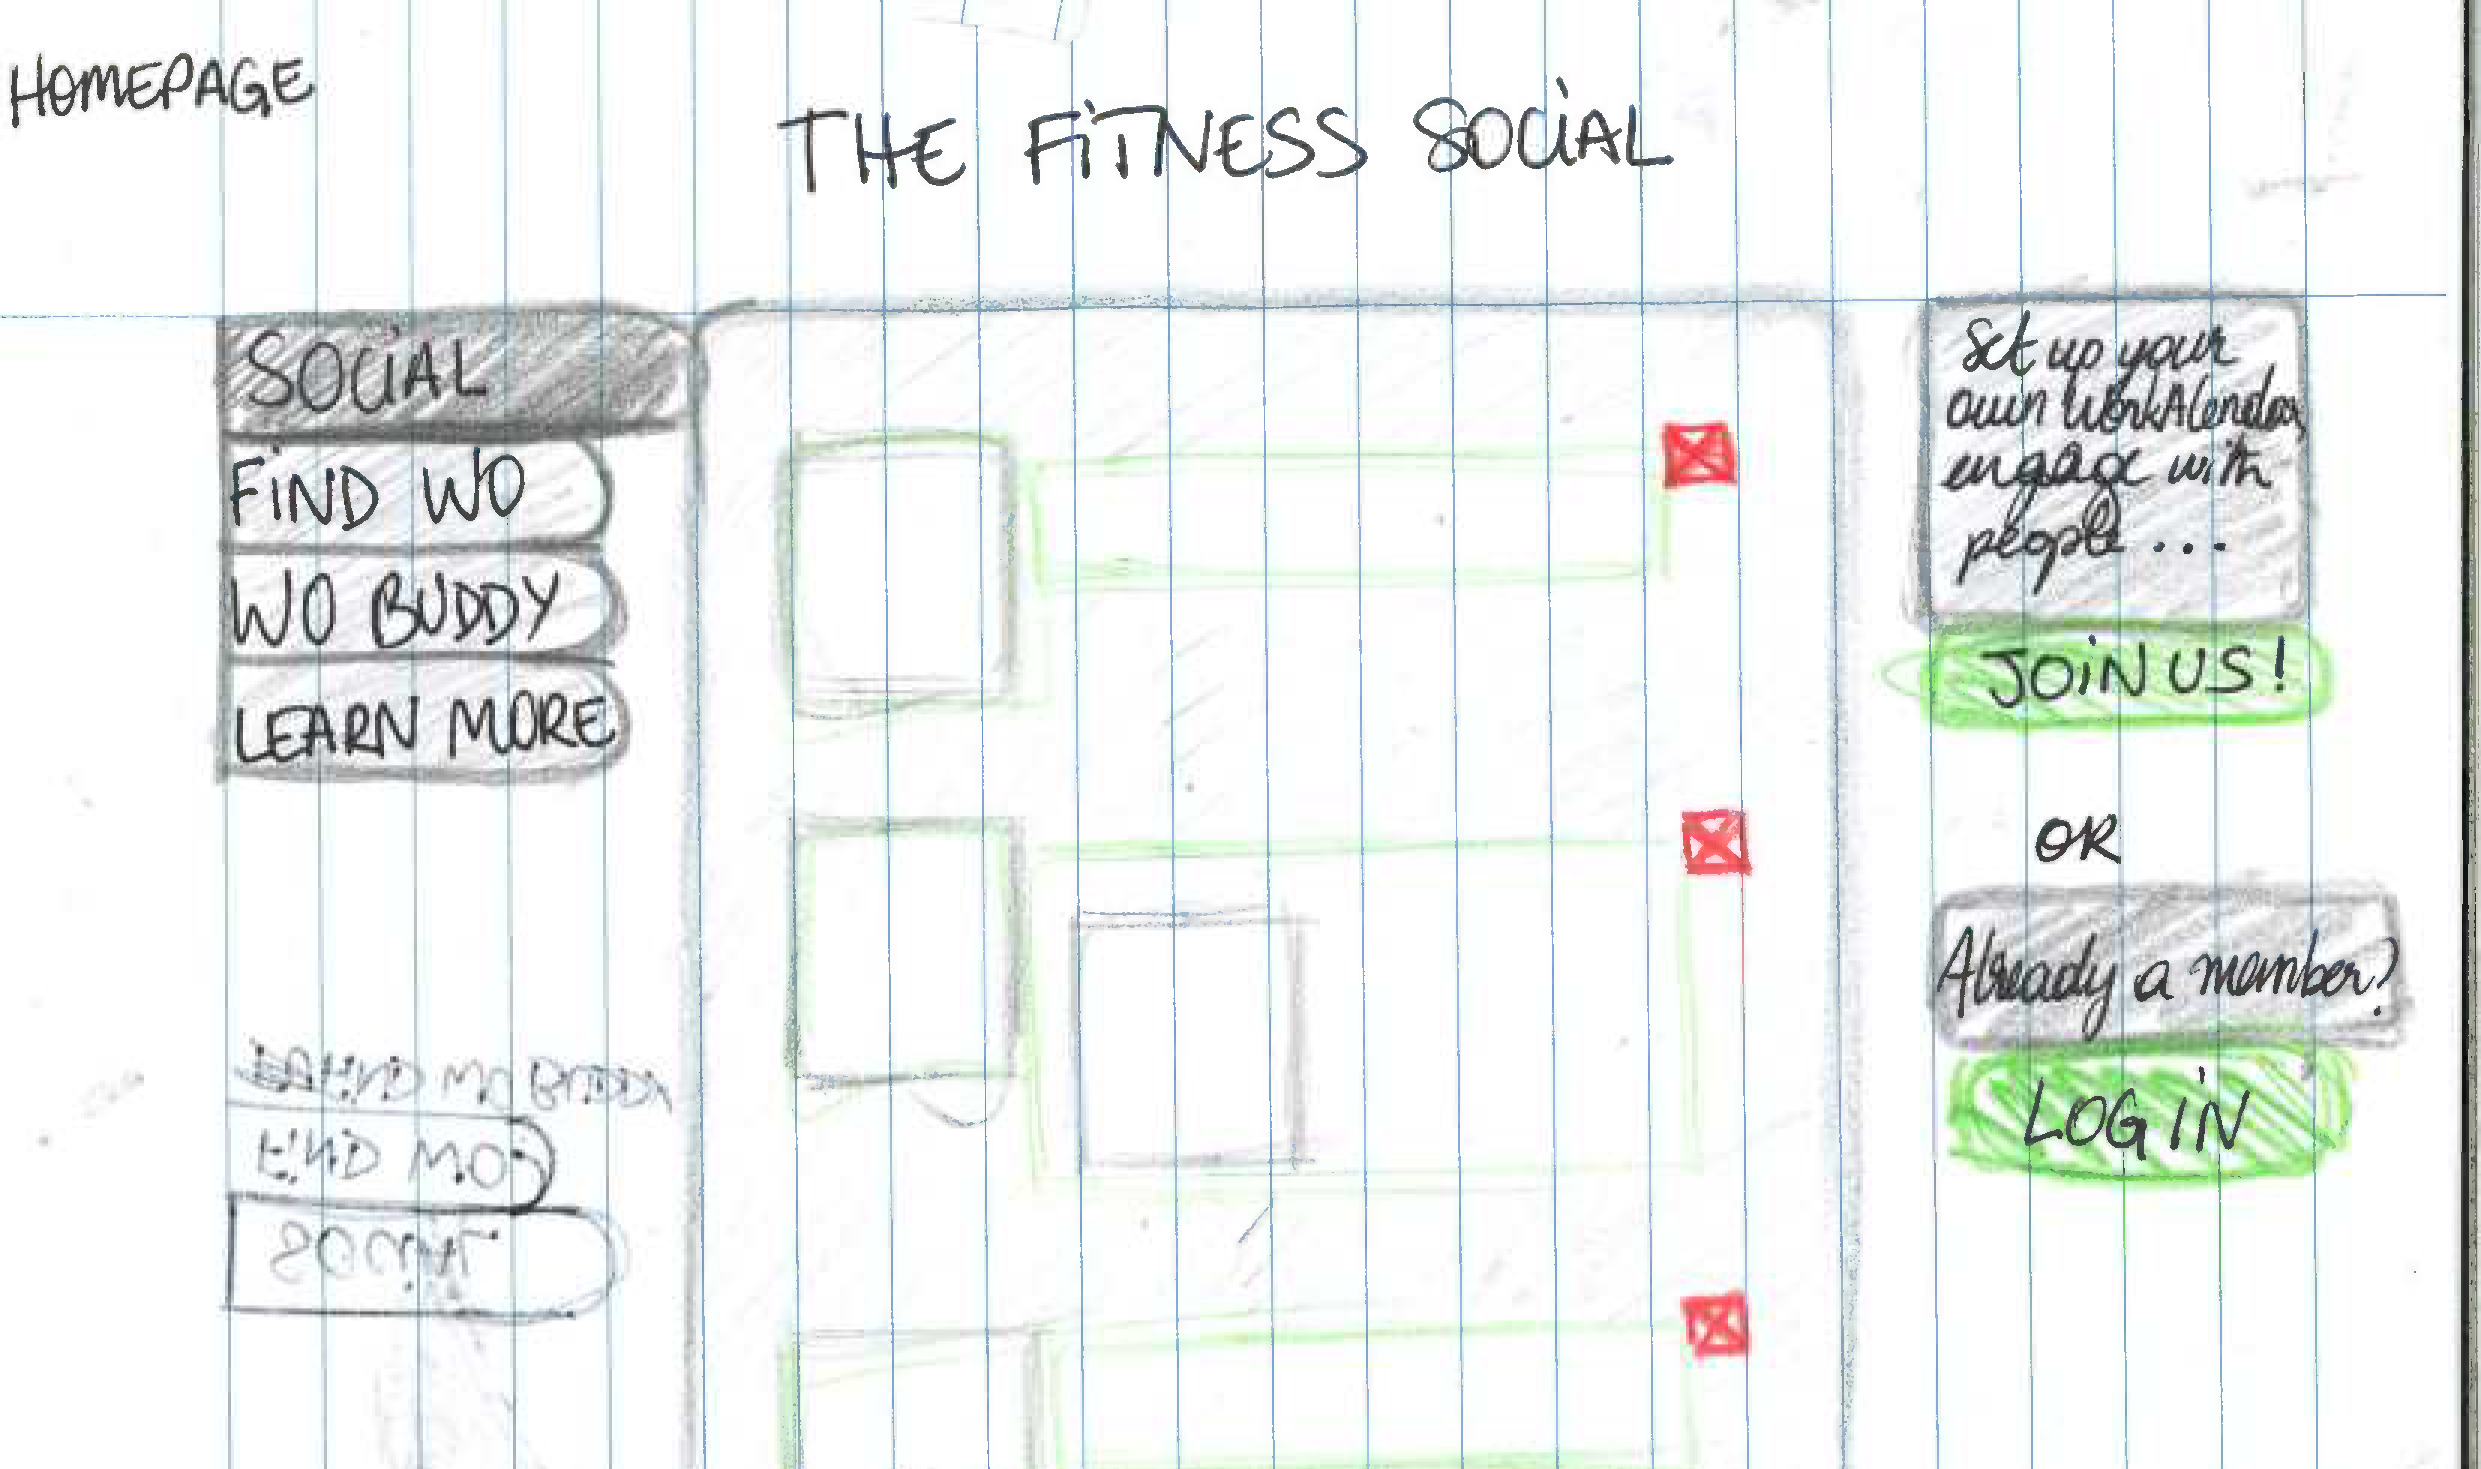 HOMEPAGE
THE FITNESS SOCIAL
SOCIAL
FIND WO
WO BUDDY
LEARN MORE
Set up your
own WorkAlendar,
engage with
people...
JOIN US!
OR
Already a member?
LOG IN